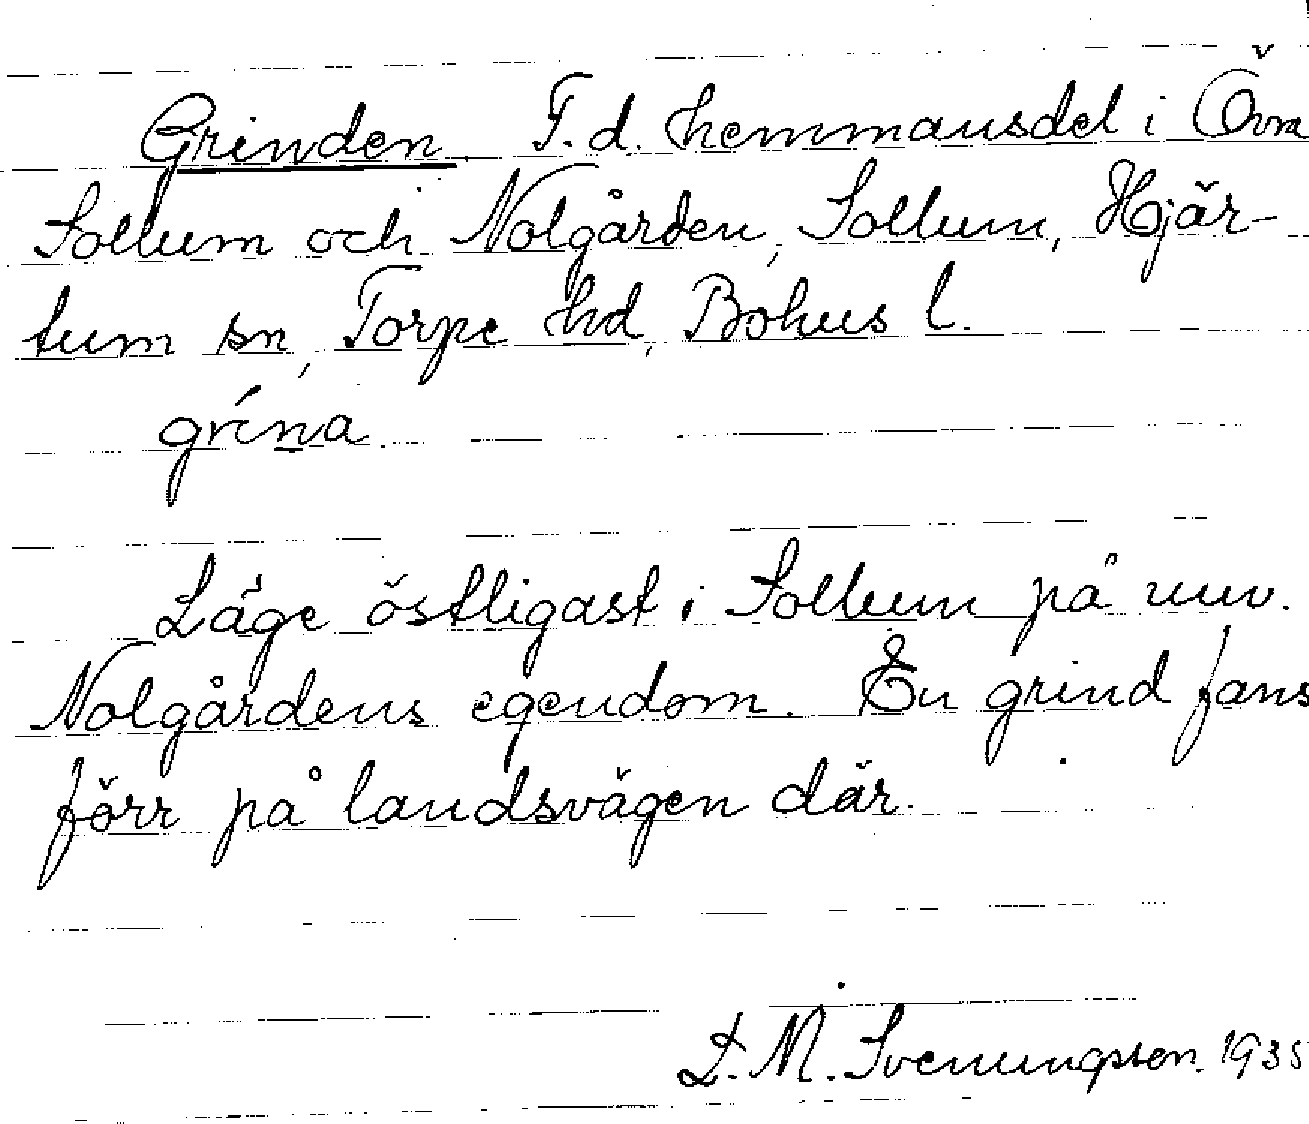 Grinden. F.d. hemmansdel i Övra
Sollum och Nolgården, Sollum, Hjär-
tum sn, Torpe hd, Bohus l.
grína
Läge östligast i Sollum på nuv.
Nolgårdens egendom. En grind fans
förr på landsvägen där.
L. M. Svenungsson. 1935